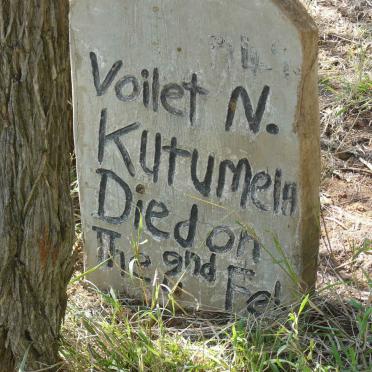 Voilet N.
Kutumela
Died on
The 2nd
Fe